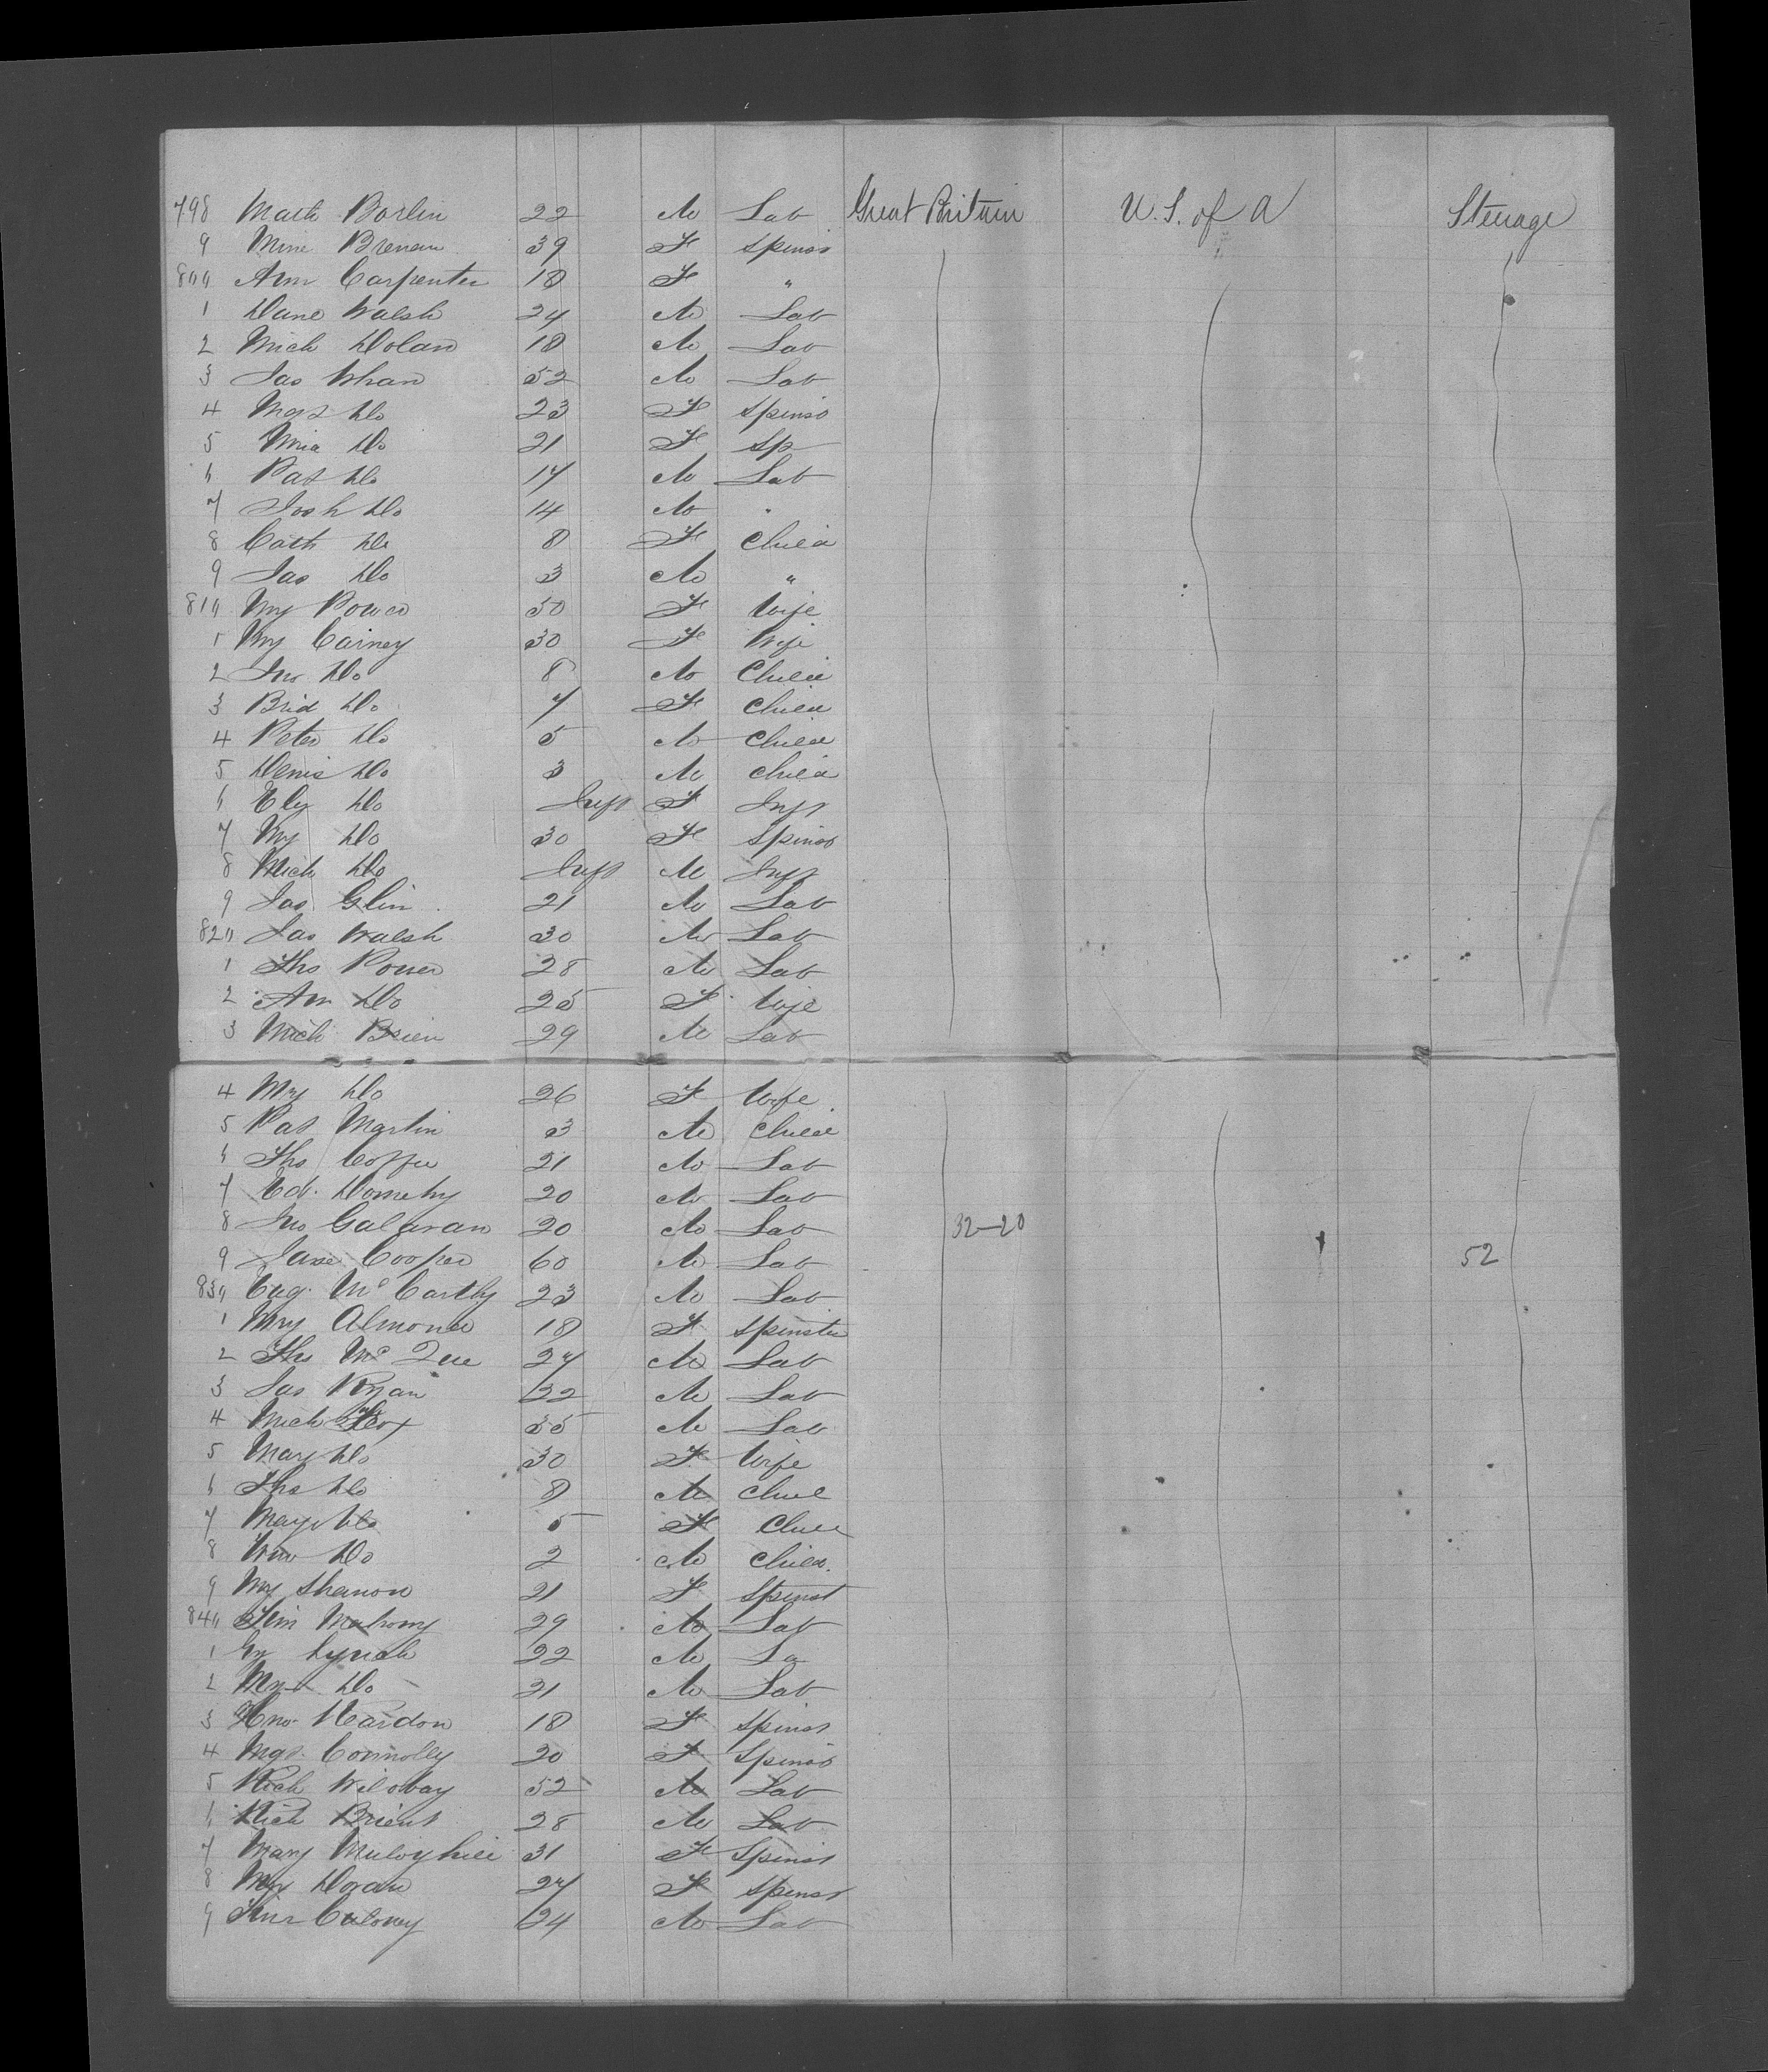 798 Math Borlin 22 M Lab Great Britain U.S. of A Steerage
9 Mim Brenan 39 F Spinsr
800 Ann Carpenter 18 F "
1 Dane Walsh 24 M Lab
2 Mich Dolan 18 M Lab
3 Jas Whan 52 M Lab
4 Mgt Do 23 F Spinsr
5 Mia Do 21 F Sp
6 Pat Do 17 M Lab
7 Josh Do 14 M "
8 Cath Do 8 F Child
9 Jas Do 3 M "
810 My Power 50 F Wife
1 My Cairney 30 F Wife
2 Jno Do 8 M Child
3 Brid Do 7 F Child
4 Peter Do 5 M Child
5 Denis Do 3 M Child
6 Ely Do Inft F Inft
7 My Do 30 F Spinsr
8 Mich Do Inft M Inft
9 Jas Glin 21 M Lab
820 Jas Walsh 30 M Lab
1 Ths Power 28 M Lab
2 Ann Do 25 F Wife
3 Mich Brien 29 M Lab
4 My Do 26 F Wife
5 Pat Martin 3 M Child
6 Ths Coffee 21 M Lab
7 Ed. 20 M Lab
8 Jno Galavan 20 M Lab 32-20
9 Jane Cooper 60 M Lab 52
830 Eug. McCarthy 23 M Lab
1 My Almond 18 F Spinster
2 Ths Mc 27 M Lab
3 Jas Ryan 22 M Lab
4 Mich 35 M Lab
5 Mary Do 30 F Wife
6 Ths Do 8 M Chil
7 Mary Do 5 F Chil
8 Wm Do 2 M Child.
9 My Shanon 21 F Spinst
840 Tim Mahony 29 M Lab
1 Lynch 22 M La
2 Do 21 M Lab
3 Hno. Reardon 18 F Spinsr
4 Mgt. Connolly 20 F Spinsr
5 Rich Wilobay 52 M Lab
6 Rich Brient 28 M Lab
7 Mary 31 F Spinsr
8 My Dogan 27 F Spinsr
9 24 M Lab